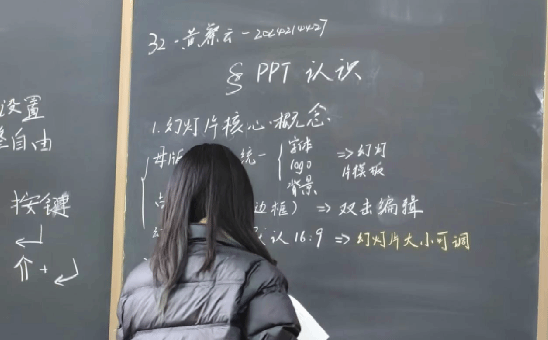 设置
自由
按键
32.黄蔡云-2024214427
§ PPT 认识
1.幻灯片核心概念
母版 统一 { 字体 logo 背景 => 幻灯片模板
边框) => 双击编辑
认16:9 => 幻灯片大小可调